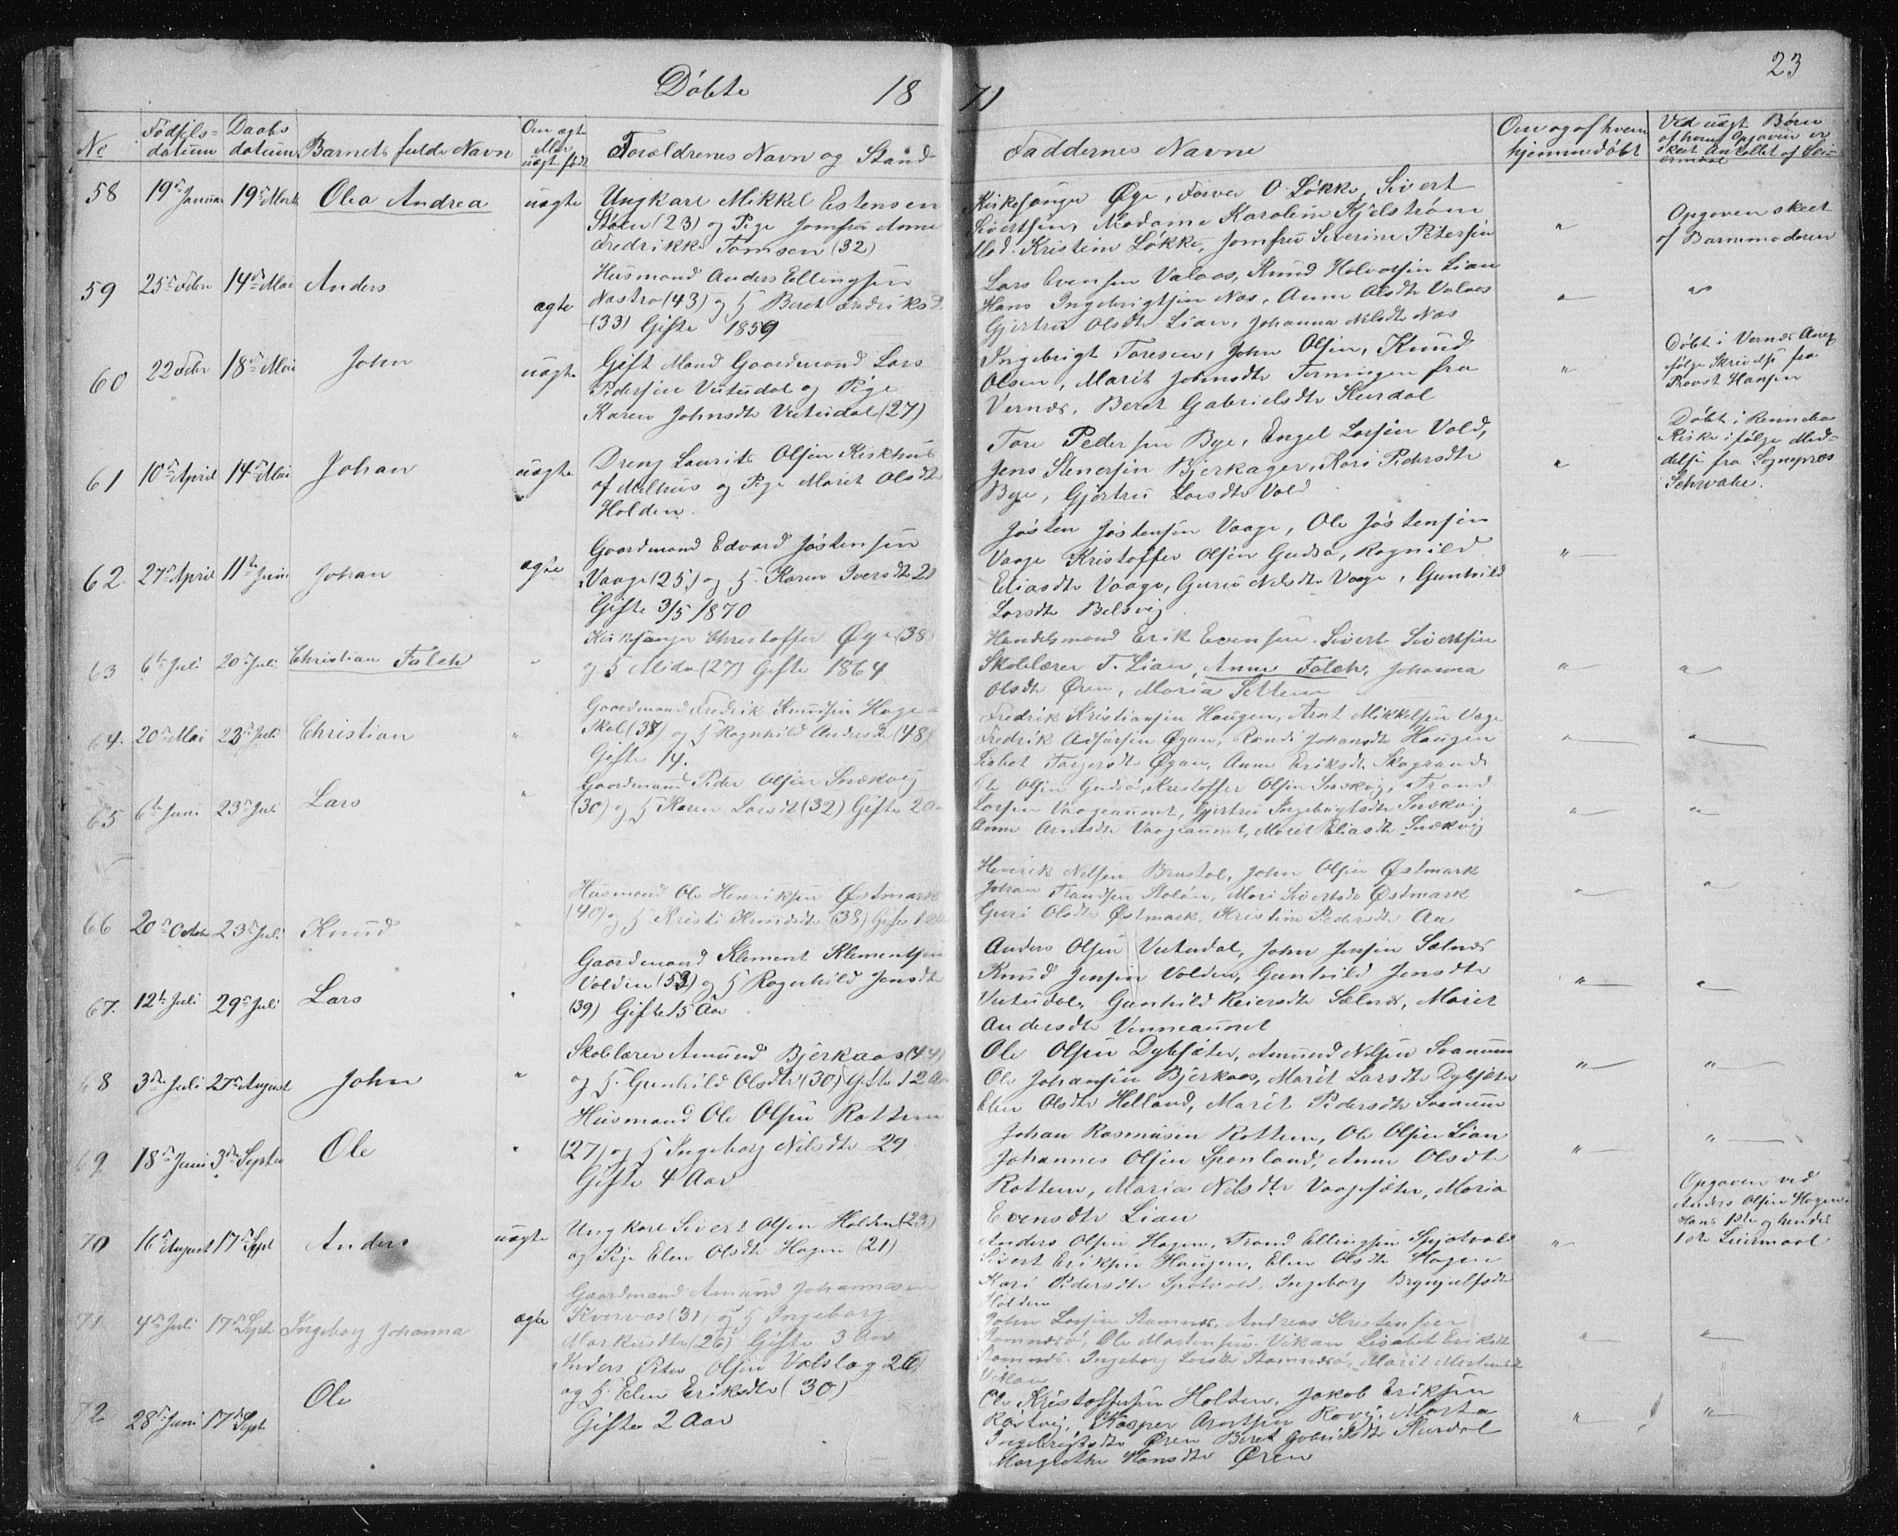 23
Døbte 18 71
No
Fødsels-
datum
Daabs
datum
Barnets fulde Navn
Om ægte
eller
uægt født
Forældrenes Navn og Stand
Faddernes Navne
Om og af hvem
hjemmedøbt
Ved uægt Børn
af hvem Opgaven er
skeet Antallet af Lei-
ermaal
58 19de Januar 19de Marts Olea Andrea uægte
Ungkarl Mikkel Estensen
Støen (23) og Pige Jomfru Anne
Fredrikke Tomsen (32)
Kirkesanger Øye, Farver O Løkke, Sivert
Sivertsen, Madame Karoline Kjelstrøm
Mad. Kristine Løkke, Jomfru Severine Petersen
"
Opgaven skeet
af Barnemoderen
59 25de Febr 14de Mai Anders ægte
Husmand Anders Ellingsen
Nastro (43) og H Beret Endriksd
(33) Gifte 1859
Lars Evensen Valaas, Knud Halvorsen Lian
Hans Ingebrigtsen Næs, Anne Olsdtr Valaas
Gjertru Olsdtr Lian, Johanna Nilsdtr Næs
"
"
60 22 Febr 18de Mai John uægte
Gift Mand Gaardmand Lars
Pedersen Vutudal og Pige
Karen Johnsdtr Vutudal (27)
Ingebrigt Toresen, John Olsen, Knud
Olsen, Marit Johnsdtr Terningen fra
Vernes, Beret Gabrielsdtr Skurdal
"
Døbt i Vernes Anex
følge Skrivelse fra
Provst Hansen
61 10de April 14de Mai Johan uægte
Dreng Laurits Olsen Kirkhus
af Melhus og Pige Marit Olsdtr
Holden.
Tore Pedersen Bye, Engel Larsen Vold,
Jens Stenersen Bjerkager, Kari Pedersdtr
Bye, Gjertru Larsdtr Vold
"
Døbt i Rennebo
Kirke ifølge Med-
delse fra Sognepræs
Schwake.
62. 27de April 11te Juni Johan ægte
Gaardmand Edvard Jøstensen
Vaage (25) og H. Karen Iversdtr 21
Gifte 3/5 1870
Jøsten Jøstensen Vaage, Ole Jøstensen
Vaage Kristoffer Olsen Gudsø, Ragnild
Eliasdtr Vaage, Guru Nilsdtr Vaage, Gunhild
Larsdtr Belsvig
"
63 6te Juli 20de Juli Christian Falch "
Kirkesanger Christoffer Øye (38)
og H Alida (27) Gifte 1864
Handelsmand Erik Evensen. Sivert Sivertsen
Skolelærer T. Lian, Anne Falch, Johanna
Olsdtr Øren, Maria Settem
"
"
64. 20de Mai 23de Juli Christian "
Gaardmand Fredrik Knudsen Hage-
skel (37) og H Ragnhild Andersdtr (48)
Gifte 14.
Fredrik Kristiansen Haugen, Arnt Mikkelsen Vage
Fredrik Øyan, Randi Johansdtr Haugen
Lisbet Øyan, Anne Eriksdtr Skogrand
"
"
65 6te Juni 23de Juli Lars "
Gaardmand Peder Olsen Snækvig
(30) og H Karen Larsdt (32) Gifte 2 Aar
Ole Olsen Gudsø, Kristoffer Olsen Snækvig, Trond
Larsen Vaageaunet, Gjertru Ingebrigtsdtr Snækvig
Anne Arntsdtr Vaageaunet, Marit Eliasdtr Snækvig
"
"
66 20de Octobr 23de Juli Knud "
Husmand Ole Henriksen Østmark
(40) og H Kristi Knudsdtr (38) Gifte
Henrik Nilsen Brustol, John Olsen Østmark
Johan Frandsen Stoløn, Mari Sivertsdtr Østmark
Guri Olsdtr Østmark, Kristine Pedersdtr Aa
"
"
67. 12te Juli 29de Juli Lars "
Gaardmand Klement Klementsen
Volden (53) og H Ragnhild Jensdtr
(39) Gifte 15 Aar
Anders Olsen Vutudal, John Jensen Sælnes
Knud Jensen Volden, Gunhild Jensdtr
Vutudal, Gunhild Reiersdtr Sælnes, Marit
Andersdtr Venneaunet
"
"
68 3die Juli 27de August John "
Skolelærer Amund Bjerkaas (44)
og H. Gunhild Olsdtr (30) Gifte 12 Aar
Ole Olsen Dybsjøter, Amund Nilsen Svanum
Ole Johansen Bjerkaas, Marit Larsdtr Dybsjøter
Elen Olsdtr Helland, Marit Pedersdtr Svanum
"
"
69. 18de Juni 3die Septbr Ole "
Husmand Ole Olsen Rottem
(27) og H Ingeborg Nilsdtr 29
Gifte 4 Aar
Johan Rasmusen Rottem, Ole Olsen Lian
Johannes Olsen Spanland, Anne Olsdtr
Rottem, Maria Nilsdtr Vaagesæter, Maria
Evensdtr Lian
"
"
70 16de August 17de Sept Anders uægte
Ungkarl Sivert Olsen Holden (23)
og Pige Elen Olsdtr Hagen (21)
Anders Olsen Hagen, Trond Ellingsen Spjotvold
Sivert Eriksen Haugen, Elen Olsdtr Hagen
Kari Pedersdtr Spotvold, Ingeborg Brynjulfsdtr
Holden
"
Opgaven ved
Anders Olsen Hagen
Hans 1ste og hendes
1ste Leiermaal
71. 4de Juli 17de Sept Ingeborg Johanna ægte
Gaardmand Amund Johannesen
Kvervas (31) og H Ingeborg
Markusdtr (26) Gifte 3 Aar
John Larsen Stamnes, Andreas Kristensen
Ramnesø, Ole Mortensen Vikan Lisabet Eriksdtr
Ramnes. Ingeborg Larsdtr Stamnesø, Marit Mortensdtr
Vikan
"
"
72 28de Juni 17de Sept Ole
Anders Peter Olsen Valslag 26
og H. Elen Eriksdtr (30)
Gifte 2 Aar
Ole Kristoffersen Holten, Jakob Eriksen
Røstvig, Kasper Arntsen Rovig, Marta
Ingebrigtsdtr Øren Beret Gabrielsdtr Skurdal
Margrethe Hansdtr Øren
"
"